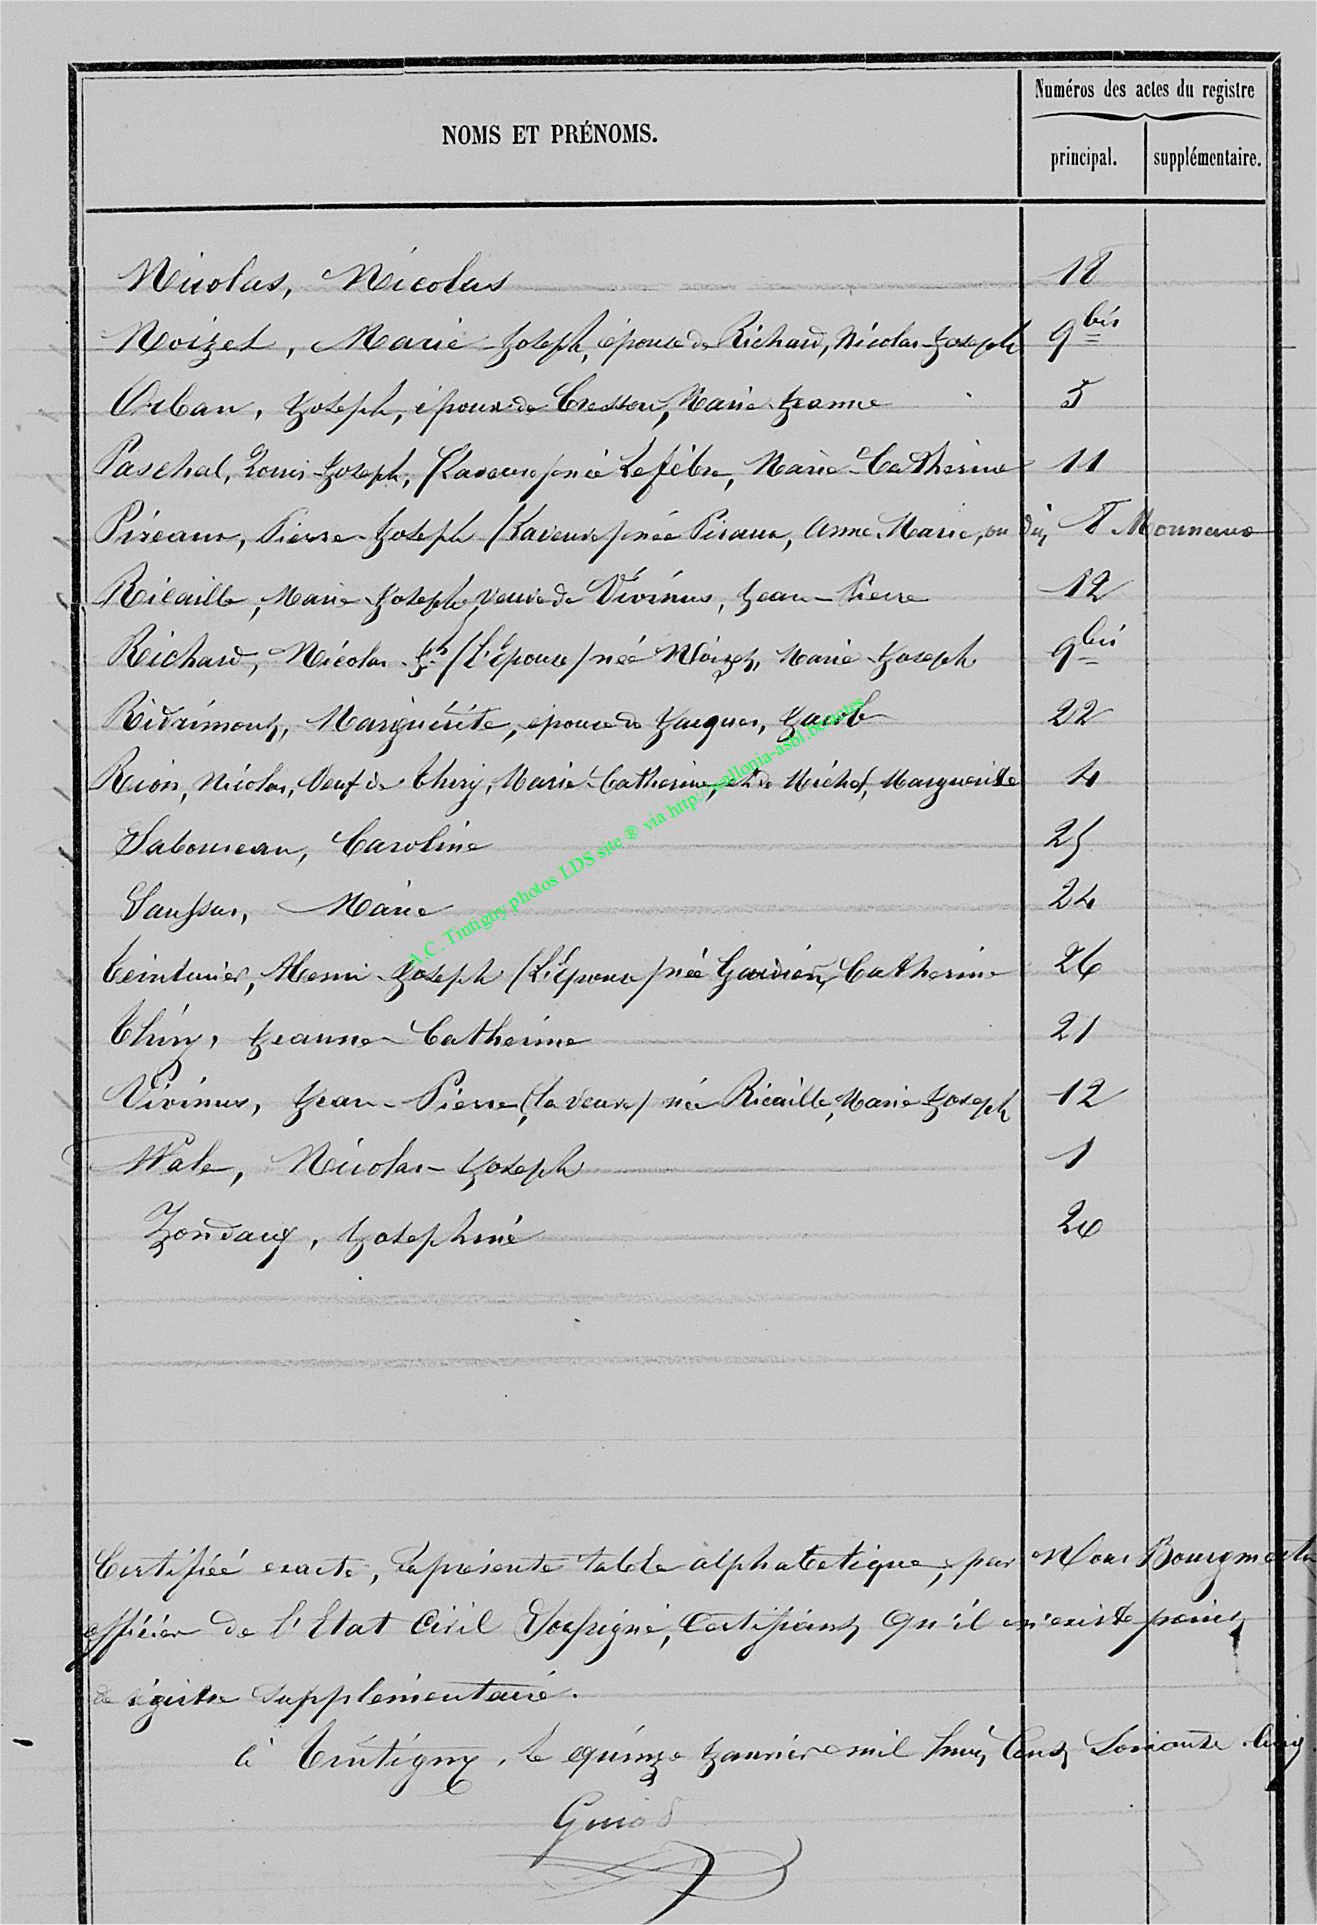 Numéros des actes du registre
NOMS ET PRÉNOMS.
principal. supplémentaire.
Nicolas, Nicolas 18
Noizet, Marie-Joseph, épouse de Richard, Nicolas-Joseph 9 bis
Orban, Joseph, époux de Cresson, Marie-Jeanne 5
Paschal, Louis-Joseph, (La veuve) née Lefèbre, Marie-Catherine 11
Pireaux, Pierre-Joseph (La veuve) née Piraux, Anne-Marie, ou dit, 8 Monneaux
Ricaille, Marie-Joseph, veuve de Vivinus, Jean-Pierre 12
Richard, Nicolas-Jh (L'épouse) née Noizet, Marie-Joseph 9 bis
Ridrimont, Marguerite, épouse de Jacques, Jacob 22
Rion, Nicolas, Veuf de Thiry, Marie-Catherine, et de Michel, Marguerite 4
Saboureau, Caroline 25
Saussus, Marie 24
Teinturier, Henri-Joseph (L'épouse) née Gardien, Catherine 26
Thiry, Jeanne-Catherine 21
Vivinus, Jean-Pierre, (la veuve) née Ricaille, Marie-Joseph 12
Wale, Nicolas-Joseph 1
Zondacq, Josephine 20
Certifiée exacte, la présente table alphabetique, par Nous Bourgmestre
officier de l'Etat Civil Soussigné, Certifiant qu'il n'existe point
de régistre supplémentaire.
à Tintigny, le quinze Janvier mil huit Cent Soixante Cinq
Guiod
A.C. Tintigny photos LDS site ® via http://wallonia-asbl.be/notes